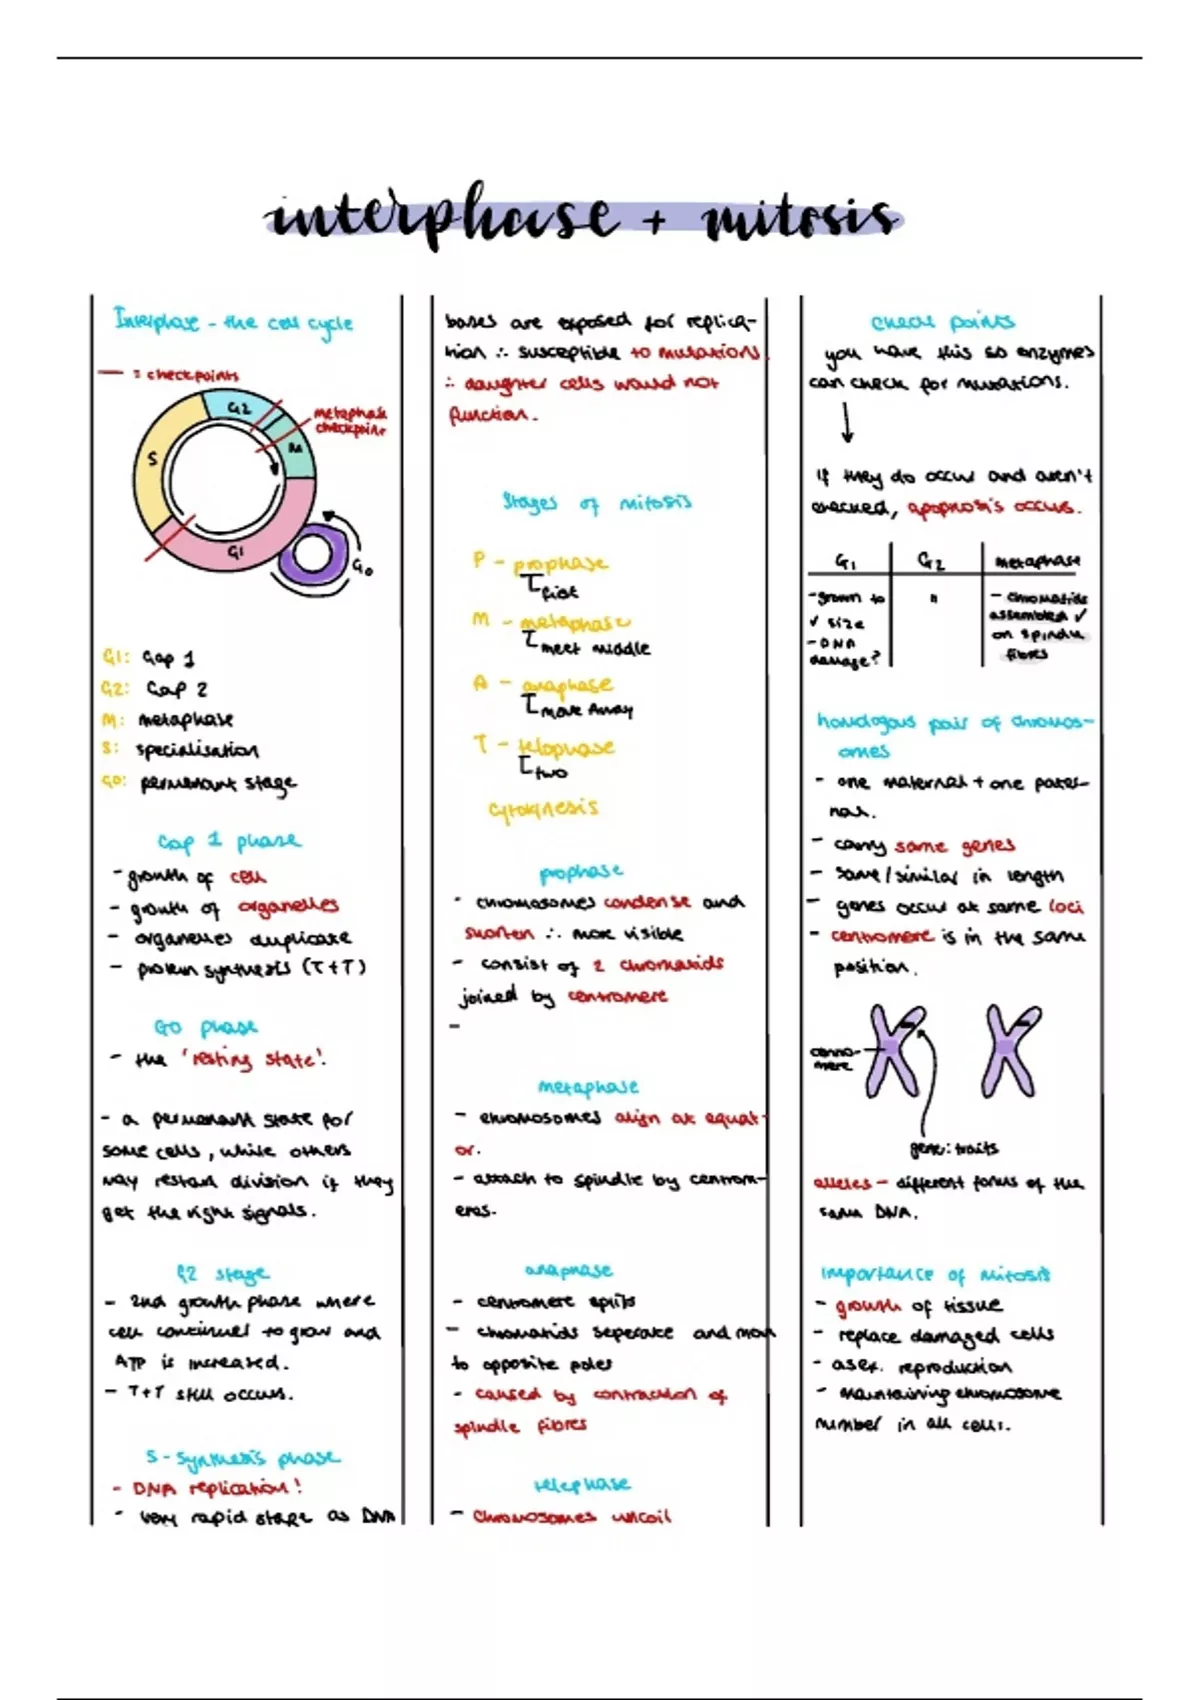 interphase + mitosis
Interphase - the cell cycle
= checkpoints
G2
metaphase
checkpoint
M
S
G1
G0
G1: Gap 1
G2: Gap 2
M: metaphase
S: specialisation
G0: permenant stage
Gap 1 phase
- growth of cell
- growth of organelles
- organelles duplicate
- protein synthesis (T+T)
G0 phase
- the 'resting state'.
- a permenant state for
some cells, while others
may restart division if they
get the right signals.
G2 stage
- 2nd growth phase where
cell continues to grow and
ATP is increased.
- T+T still occurs.
S - synthesis phase
- DNA replication!
- very rapid stage as DNA
bases are exposed for replica-
tion ∴ susceptible to mutations
∴ daughter cells would not
function.
stages of mitosis
P - prophase
first
M - metaphase
meet middle
A - anaphase
move Away
T - telophase
two
cytokinesis
prophase
- chromosomes condense and
shorten ∴ more visible
- consist of 2 chromatids
joined by centromere
-
metaphase
- chromosomes align at equat-
or.
- attach to spindle by centrom-
eres.
anaphase
- centromere splits
- chromatids seperate and move
to opposite poles
- caused by contraction of
spindle fibres
telephase
- chromosomes uncoil
check points
you have this so enzymes
can check for mutations.
If they do occur and aren't
checked, apoptosis occurs.
G1 G2 metaphase
- grown to " - chromatids
✓ size assembled ✓
- DNA on spindle
damage? fibres
homologous pair of chromos-
omes
- one maternal + one pater-
nal.
- carry same genes
- same/similar in length
- genes occur at same loci
- centromere is in the same
position.
centro-
mere
gene: traits
alleles - different forms of the
same DNA.
importance of mitosis
- growth of tissue
- replace damaged cells
- asex. reproduction
- maintaining chromosome
number in all cells.